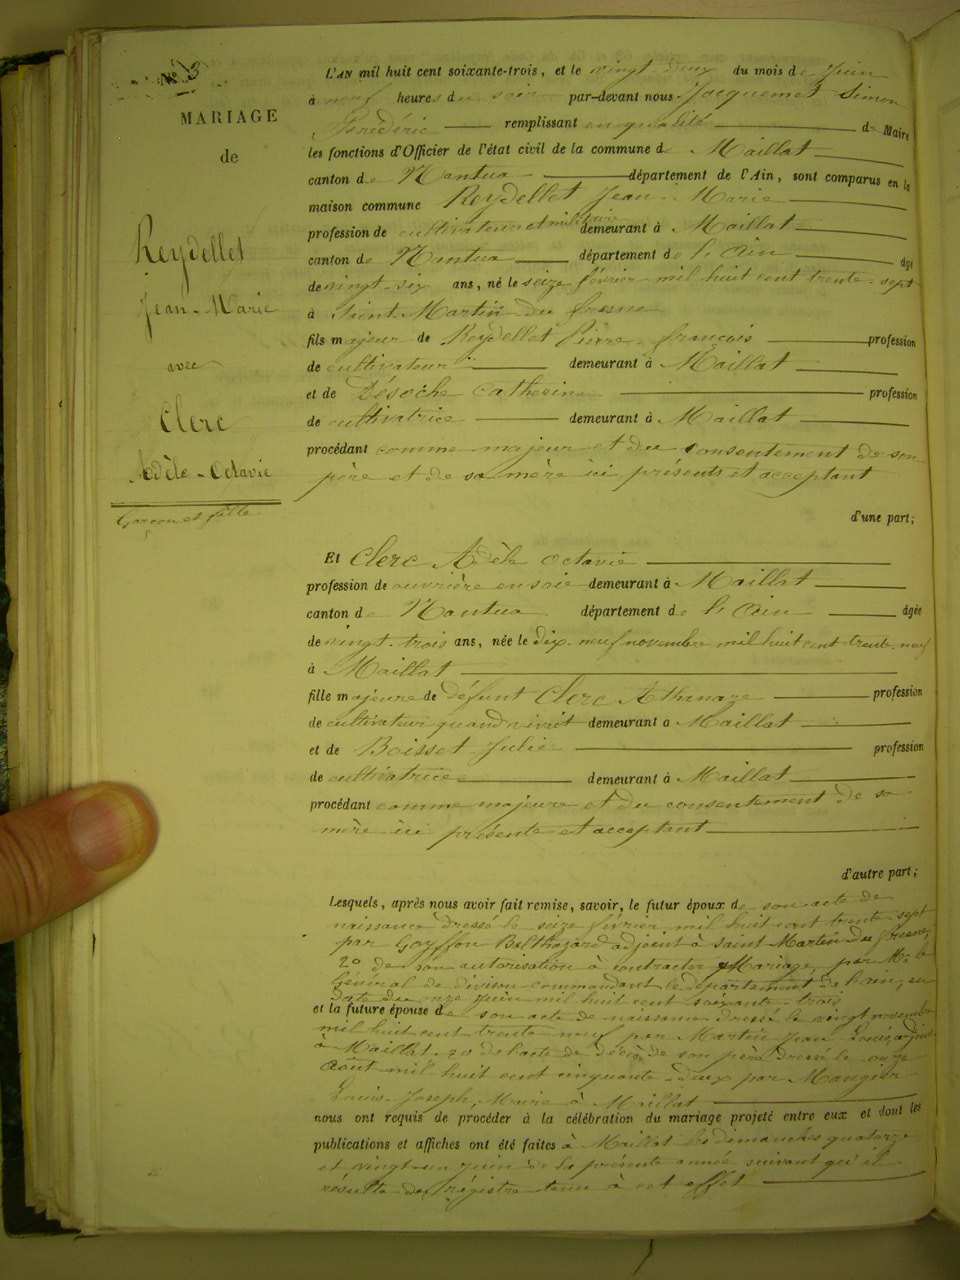 N° 3
MARIAGE
de
Reydellet
Jean-Marie
avec
Clerc
Adèle-Octavie
Garçon et fille
L'AN mil huit cent soixante-trois, et le vingt deux du mois de Juin
à neuf heures du soir par-devant nous Jacquemet Simon
Frédéric remplissant en qualité de Maire
les fonctions d'Officier de l'état civil de la commune de Maillat
canton de Nantua département de l'Ain, sont comparus en la
maison commune Reydellet Jean-Marie
profession de cultivateur et militaire demeurant à Maillat
canton de Nantua département de l'Ain âgé
de vingt-six ans, né le seize février mil huit cent trente-sept
à Saint Martin du fresne
fils majeur de Reydellet Pierre-françois profession
de cultivateur demeurant à Maillat
et de Désoche Catherine profession
de cultivatrice demeurant à Maillat
procédant comme majeur et du consentement de son
père et de sa mère ici présents et acceptant
d'une part;
Et Clerc Adèle Octavie
profession de ouvrière en soie demeurant à Maillat
canton de Nantua département de l'Ain âgée
de vingt-trois ans, née le dix-neuf novembre mil huit cent trente-neuf
à Maillat
fille majeure de défunt Clerc Athanaze profession
de cultivateur quand vivait demeurant à Maillat
et de Boisset Julie profession
de cultivatrice demeurant à Maillat
procédant comme majeure et du consentement de sa
mère ici présente et acceptant
d'autre part;
Lesquels, après nous avoir fait remise, savoir, le futur époux de son acte de
naissance dressé le seize février mil huit cent trente-sept
par Goyffon Balthazard adjoint à Saint Martin du fresne,
2° de son autorisation à contracter Mariage, par Mr le
Général de division commandant le département de l'ain, en
date du onze juin mil huit cent soixante-trois
et la future épouse de son acte de naissance dressé le vingt novembre
mil huit cent trente neuf par Martin Jean Louis, adjoint
à Maillat. 2° de l'acte de décès de son père dressé le onze
Août mil huit cent cinquante-deux par Mangier
Louis-Joseph, Maire à Maillat
nous ont requis de procéder à la célébration du mariage projeté entre eux et dont les
publications et affiches ont été faites à Maillat les dimanches quatorze
et vingt-un juin de la présente année suivant qu'il
résulte du régistre tenu à cet effet